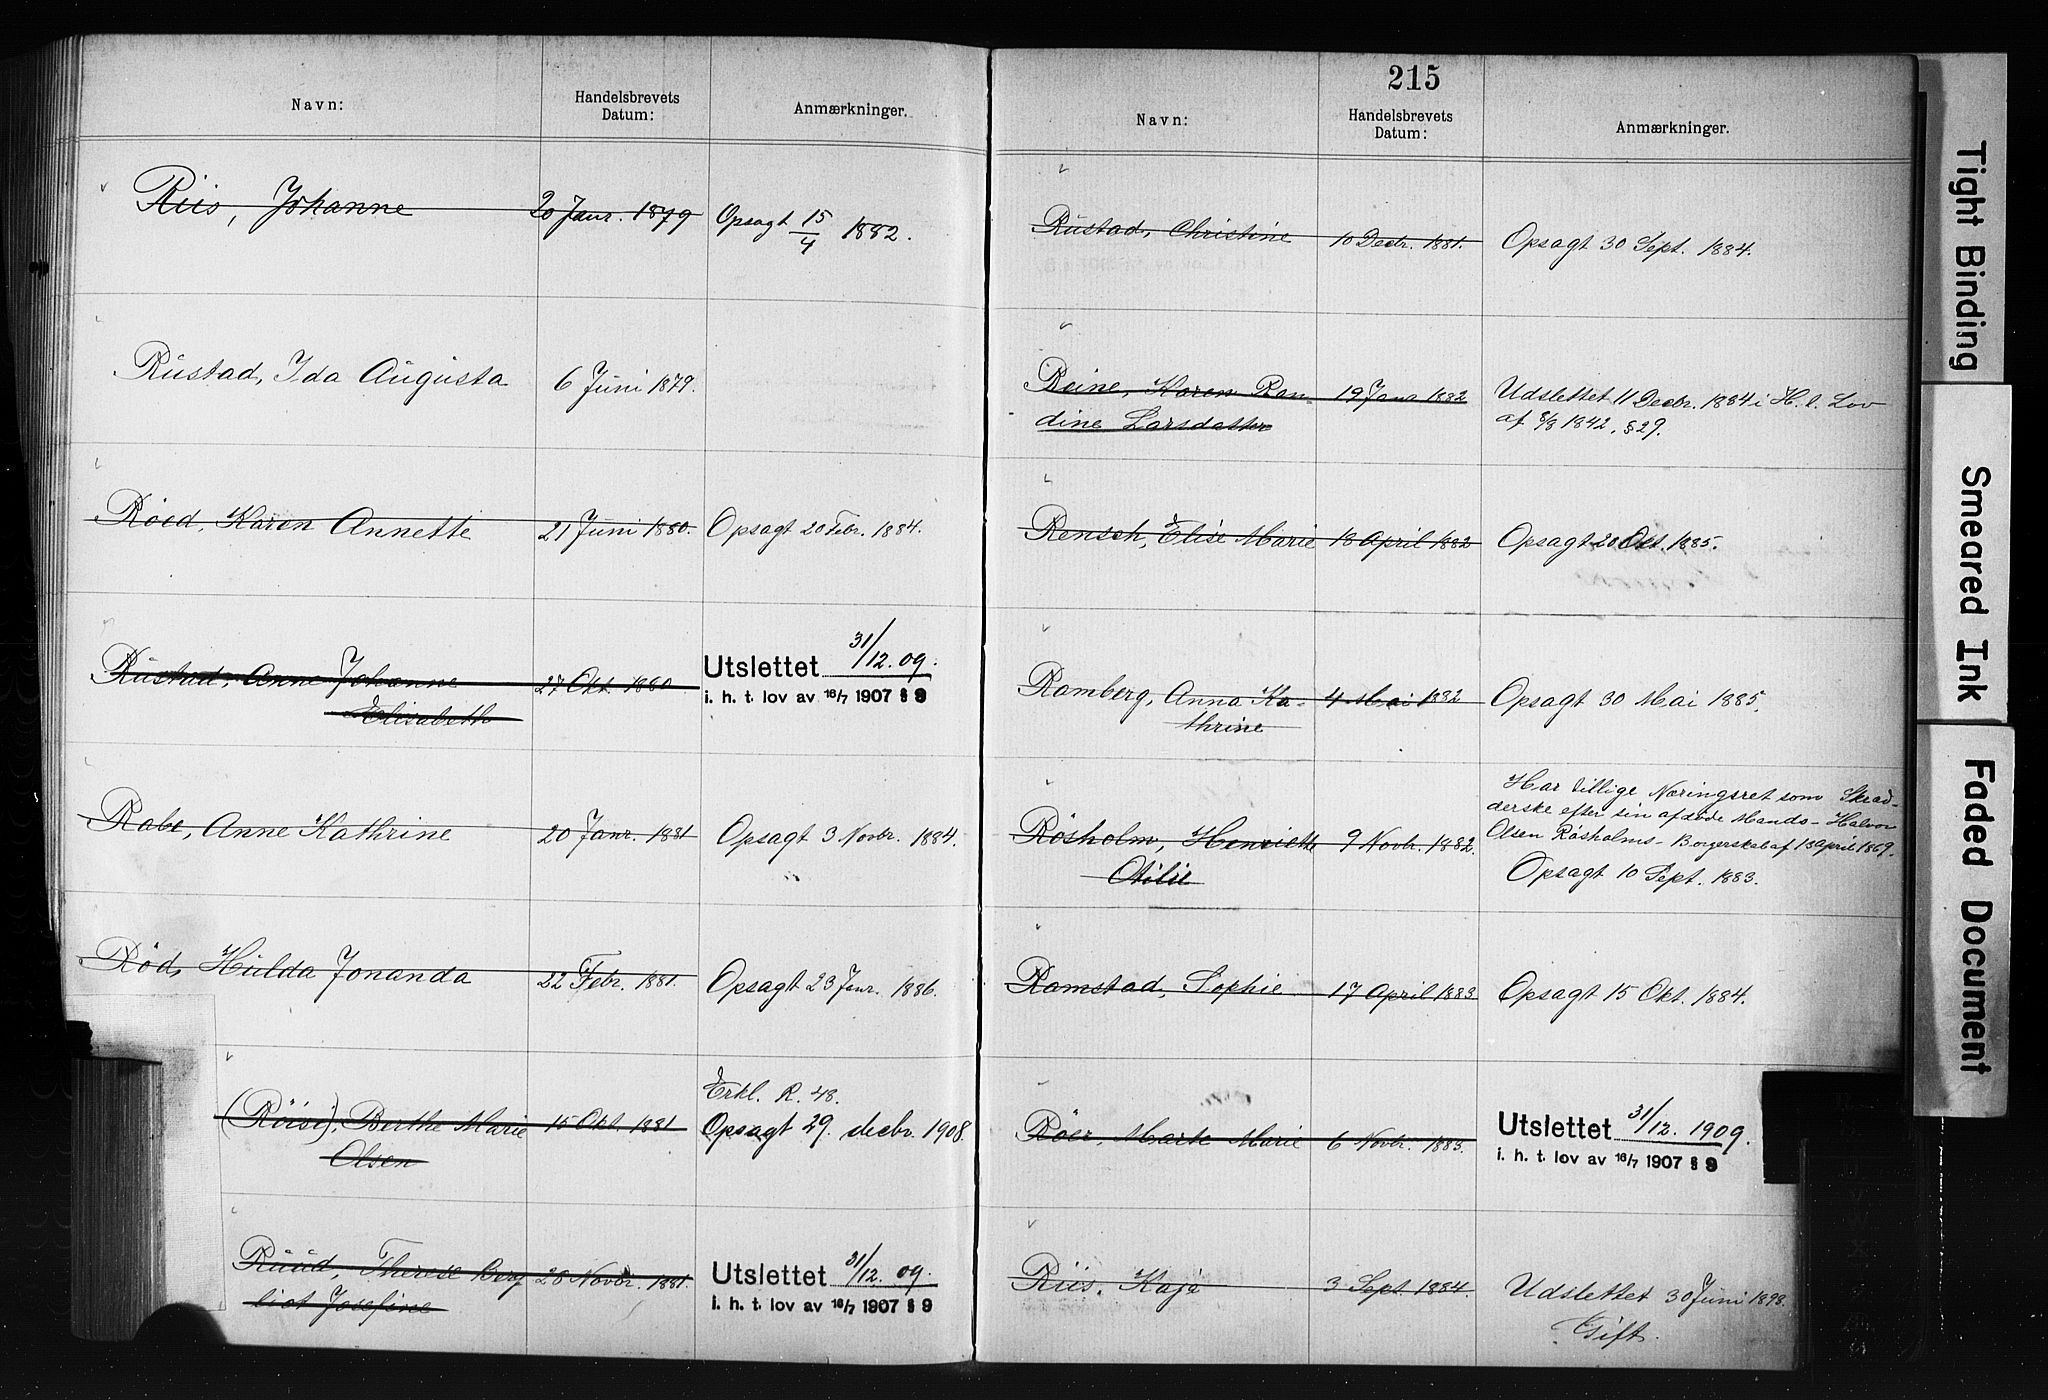 Navn:
Handelsbrevets
Datum:
Anmærkninger.
Riis, Johanne 20 Janr. 1879 Opsagt 15/4 1882.
Rustad, Ida Augusta 6 Juni 1879.
Röed, Karen Annette 21 Juni 1880. Opsagt 20 Febr. 1884.
Rustad, Anne Johanne 27 Okt. 1880 Utslettet 31/12. 09.
Elisabeth i. h. t. lov av 16/7 1907 § 9
Rabe, Anne Kathrine 20 Janr. 1881 Opsagt 3 Novbr. 1884.
Röd, Hulda Jonanda 22 Febr. 1881. Opsagt 23 Janr. 1886.
Erkl. R. 48.
(Röise), Berthe Marie 15 Okt. 1881 Opsagt 29. decbr. 1908.
Olsen
Ruud, Therese Berg 28 Novbr. 1881. Utslettet 31/12. 09.
liot Josefine i. h. t. lov av 16/7 1907 § 9
215
Navn:
Handelsbrevets
Datum:
Anmærkninger.
Rustad, Christine 10 Decbr. 1881. Opsagt 30 Sept. 1884.
Reine, Karen Ran- 19 Janr 1882 Udslettet 11 Decbr. 1884 i H. t. Lov
dine Larsdatter af 8/8 1842, § 29.
Rensch, Elise Marie 18 April 1882 Opsagt 20 Okt. 1885.
Ramberg, Anna Ka- 4 Mai 1882 Opsagt 30 Mai 1885.
thrine
Har tillige Næringsret som Skræd-
derske efter sin afdöde Mands - Halvor
Rösholm, Henriette 9 Novbr. 1882. Olsen Rösholms - Borgerskab af 13 April 1869.
Otilie Opsagt 10 Sept. 1883.
Ramstad, Sophie 17 April 1883 Opsagt 15 Okt. 1884.
Röer, Marte Marie 6 Novbr. 1883. Utslettet 31/12. 1909.
i. h. t. lov av 16/7 1907 § 9
Riis. Kaja 3 Sept 1884. Udslettet 30 Juni 1898.
Gift.
Tight Binding
Smeared Ink
Faded Document